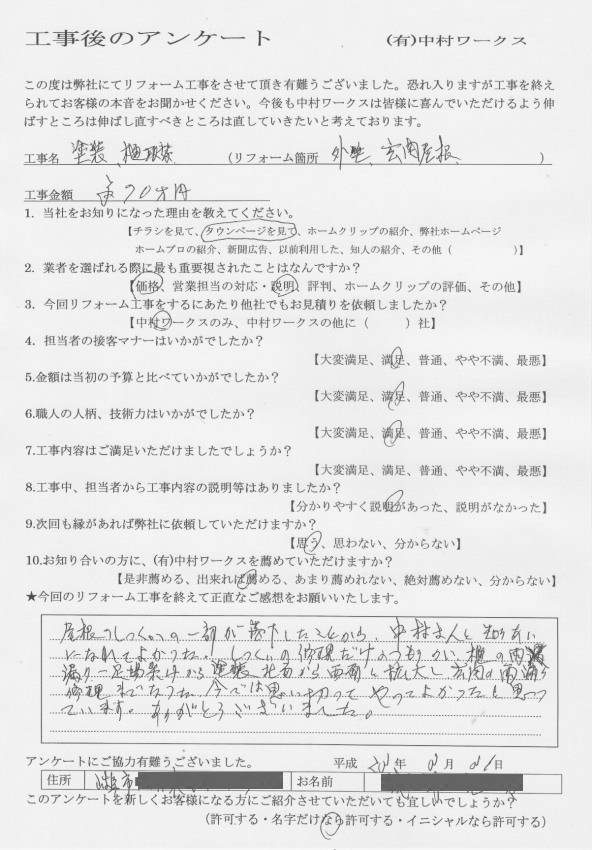 工事後のアンケート (有)中村ワークス
この度は弊社にてリフォーム工事をさせて頂き有難うございました。恐れ入りますが工事を終え
られてお客様の本音をお聞かせください。今後も中村ワークスは皆様に喜んでいただけるよう伸
ばすところは伸ばし直すべきところは直していきたいと考えております。
工事名 塗装、 (リフォーム箇所 外壁、玄関屋根 )
工事金額 70万円
1. 当社をお知りになった理由を教えてください。
【チラシを見て、タウンページを見て、ホームクリップの紹介、弊社ホームページ
ホームプロの紹介、新聞広告、以前利用した、知人の紹介、その他（ ）】
2. 業者を選ばれる際に最も重要視されたことはなんですか？
【価格、営業担当の対応・説明、評判、ホームクリップの評価、その他】
3. 今回リフォーム工事をするにあたり他社でもお見積りを依頼しましたか？
【中村ワークスのみ、中村ワークスの他に（ ）社】
4. 担当者の接客マナーはいかがでしたか？
【大変満足、満足、普通、やや不満、最悪】
5.金額は当初の予算と比べていかがでしたか？
【大変満足、満足、普通、やや不満、最悪】
6.職人の人柄、技術力はいかがでしたか？
【大変満足、満足、普通、やや不満、最悪】
7.工事内容はご満足いただけましたでしょうか？
【大変満足、満足、普通、やや不満、最悪】
8.工事中、担当者から工事内容の説明等はありましたか？
【分かりやすく説明があった、説明がなかった】
9.次回も縁があれば弊社に依頼していただけますか？
【思う、思わない、分からない】
10.お知り合いの方に、(有)中村ワークスを薦めていただけますか？
【是非薦める、出来れば薦める、あまり薦めれない、絶対薦めない、分からない】
★今回のリフォーム工事を終えて正直なご感想をお願いいたします。
屋根のしっくいの一部が落下したことから、中村さんと知りあい
になれてよかった。しっくいの修理だけのつもりが、棚の雨
漏り、足場架けから塗装 北面から西面に拡大し玄関の雨漏り
修理までなった。今では思い切ってやってよかったと思っ
ています。ありがとうございました。
アンケートにご協力有難うございました。 平成 年 月 日
住所 お名前
このアンケートを新しくお客様になる方にご紹介させていただいても宜しいでしょうか？
(許可する・名字だけなら許可する・イニシャルなら許可する)